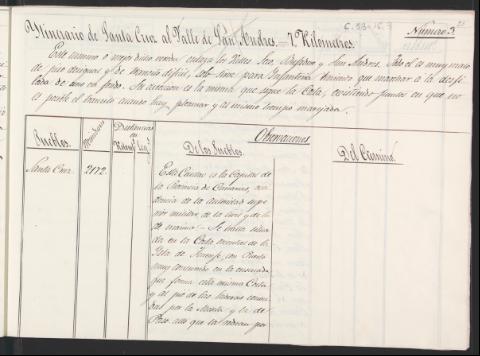 Ytinerario de Santa Cruz al Valle de San Andres. = 7 Kilometros.
Número 3.
Este camino o mejor dicho vereda enlaza los Valles Seco, Bufadero y San Andres. Todo él es muy malo
de piso escabroso y de transito dificil, solo sirve para Infanteria teniendo que marchar a la desfi-
lada de uno en fondo. Su direccion es la misma que sigue la Costa, existiendo puntos en que no
es posible el transito cuando hay pleamar y al mismo tiempo marejada.
Pueblos.
Vecindario
Distancias
en
Kiloms. Leg.s
Observaciones
De los Pueblos.
Del Camino.
Santa Cruz
2172.
Esta Ciudad es la Capital de
la Provincia de Canarias, resi-
dencia de la autoridad supe-
rior militar, de la civil y de la
de marina. = Se halla situa-
da en la Costa oriental de la
Isla de Tenerife, con Puerto
muy concurrido en la ensenada
que forma esta misma Costa
y al pie de las laderas
por la Meseta y la de
Paso alto que la rodean por